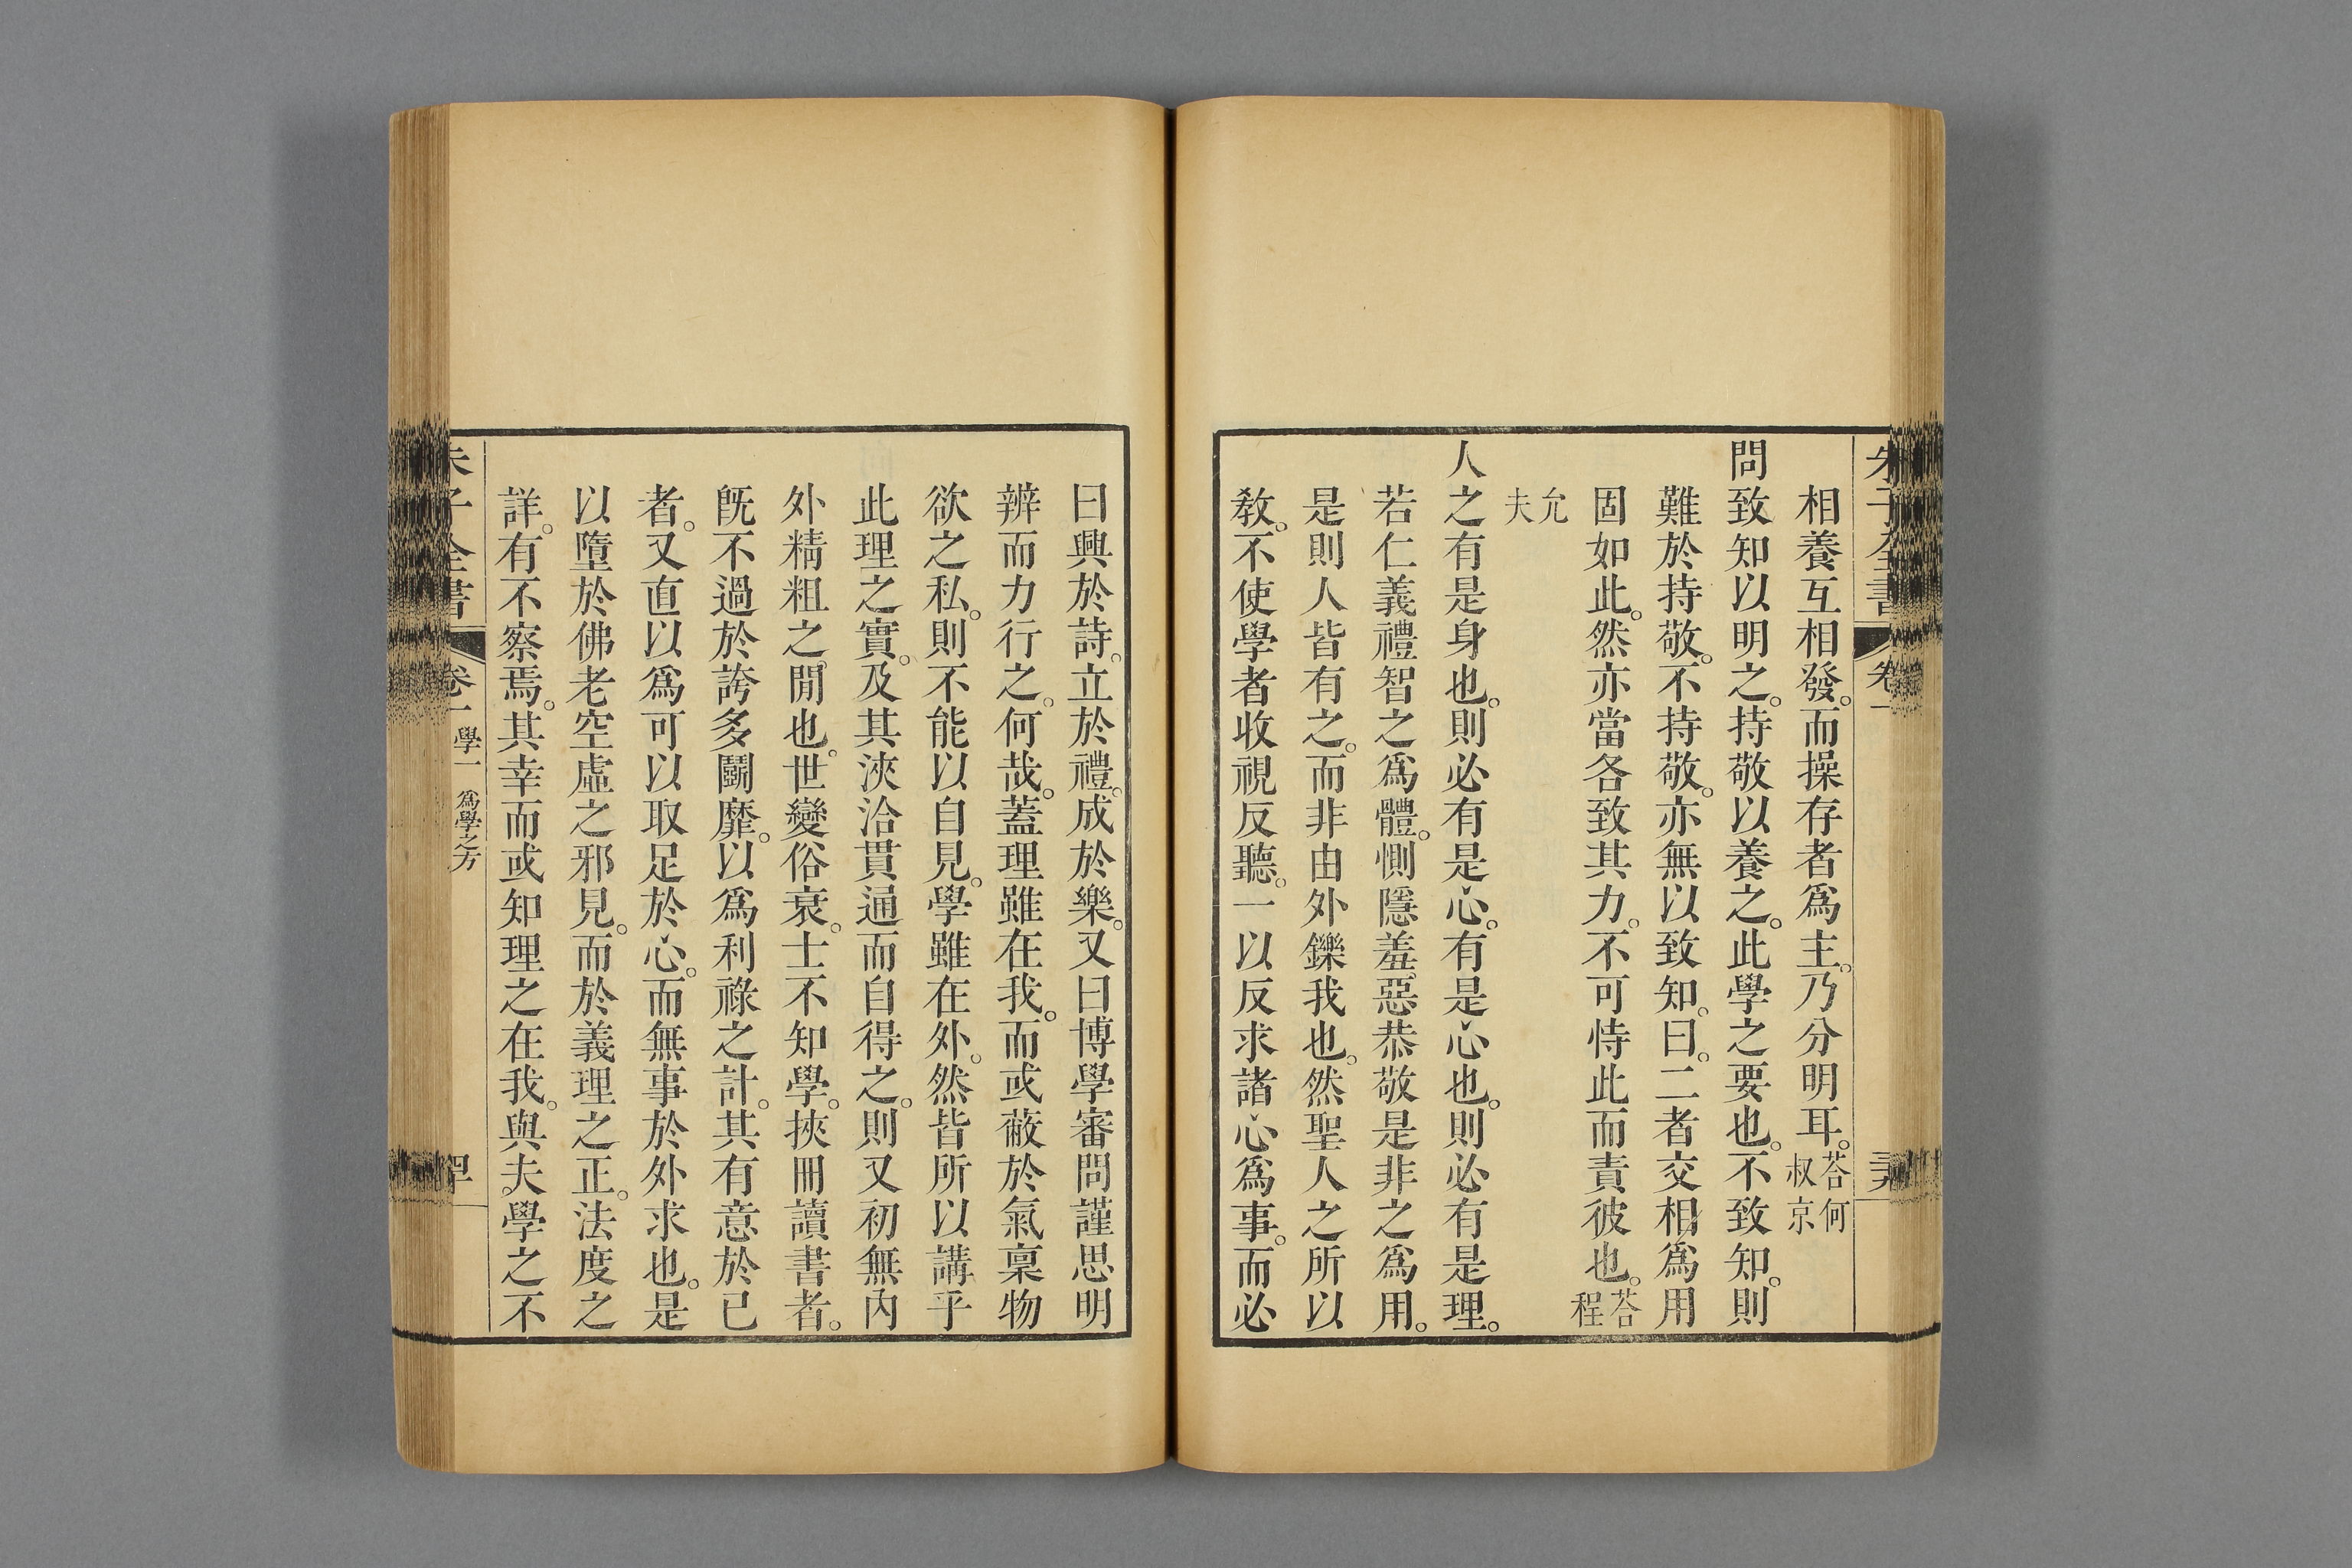 朱子全書 卷一
相養互相發。而操存者爲主。乃分明耳。荅何叔京
問致知以明之。持敬以養之。此學之要也。不致知。則
難於持敬。不持敬。亦無以致知。曰。二者交相爲用
固如此。然亦當各致其力。不可恃此而責彼也。荅程
允夫
人之有是身也。則必有是心。有是心也。則必有是理。
若仁義禮智之爲體。惻隱羞惡恭敬是非之爲用。
是則人皆有之。而非由外鑠我也。然聖人之所以
敎。不使學者收視反聽。一以反求諸心爲事。而必
曰興於詩。立於禮。成於樂。又曰博學審問謹思明
辨而力行之。何哉。蓋理雖在我。而或蔽於氣稟物
欲之私。則不能以自見。學雖在外。然皆所以講乎
此理之實。及其浹洽貫通而自得之。則又初無內
外精粗之閒也。世變俗衰。士不知學。挾冊讀書者。
旣不過於誇多鬭靡。以爲利祿之計。其有意於己
者。又直以爲可以取足於心。而無事於外求也。是
以墮於佛老空虛之邪見。而於義理之正。法度之
詳。有不察焉。其幸而或知理之在我。與夫學之不
朱子全書 卷一 學一 爲學之方